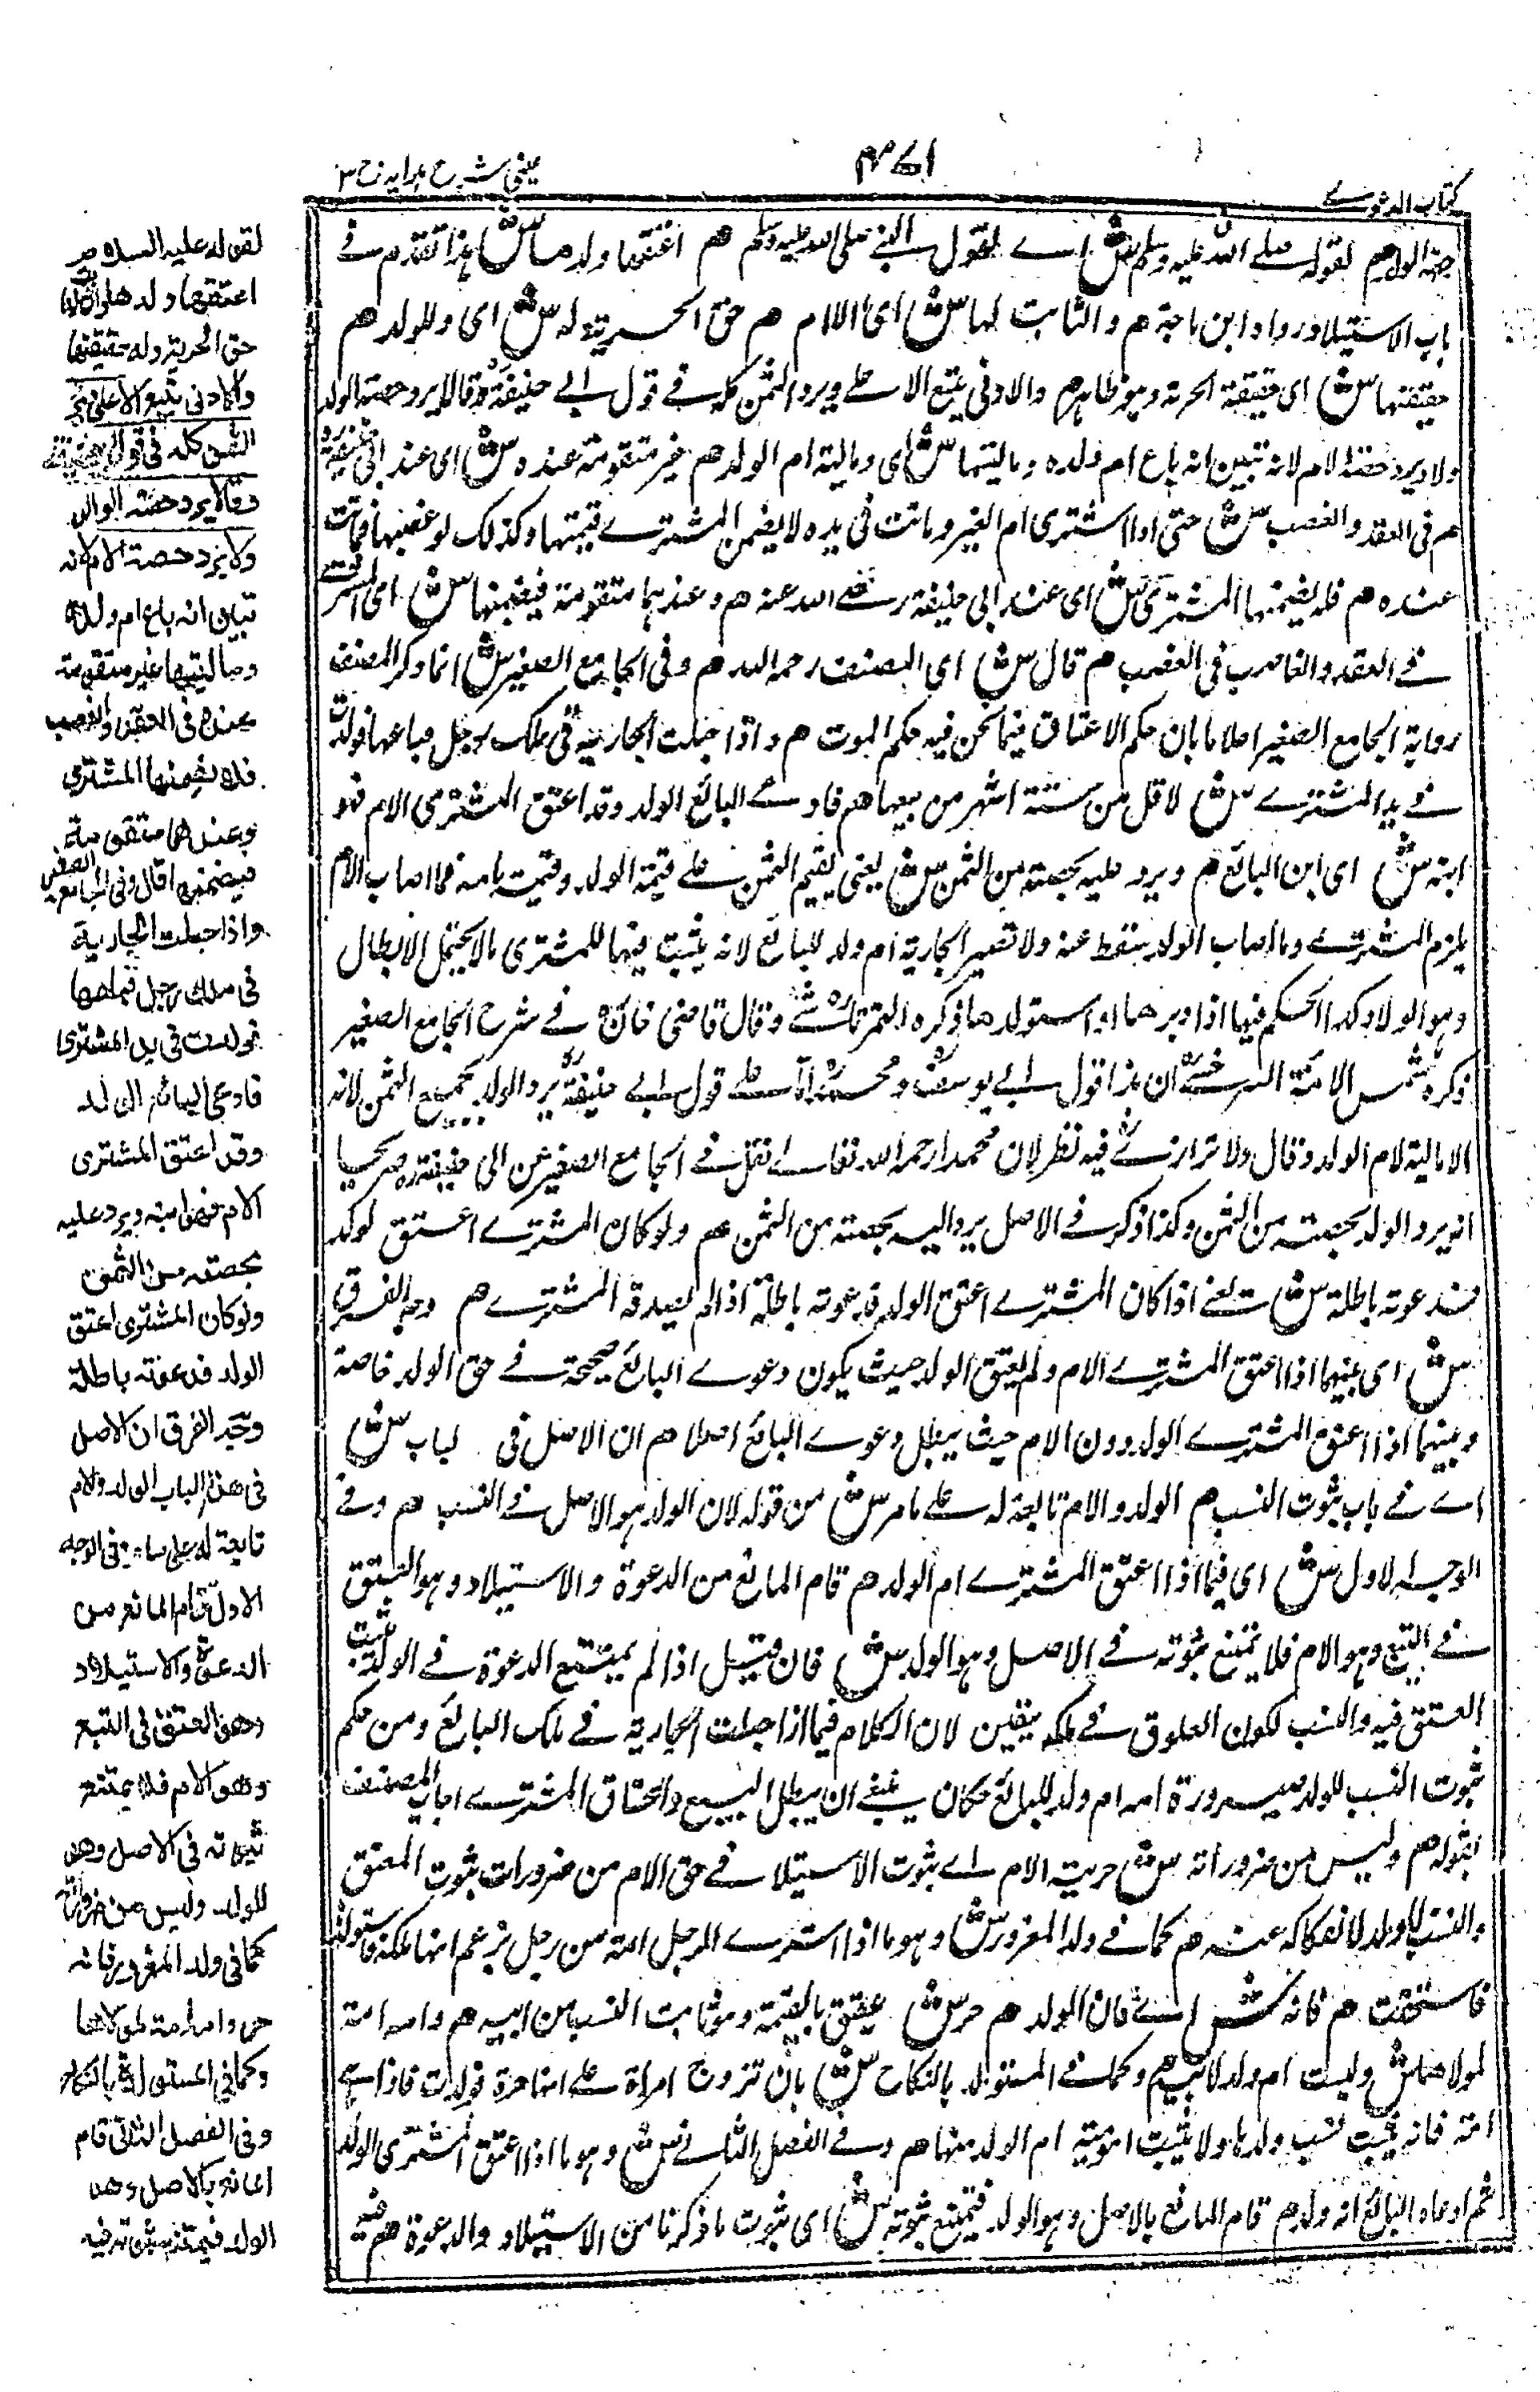 كتاب الدعوے
٤٧١
عینی شرح ہدایہ ج ٣
جهة الولد هم لقوله صلے الله عليه وسلم ش اے لقول النبی صلی الله عليه وسلم هم اعتقها ولدها ش هذا تقدم فے
باب الاستيلاد رواه ابن ماجة هم والثابت لها ش ای الام هم حق الحرية وله ش ای وللولد هم
حقيقتها ش ای حقيقة الحرية وهو ظاهر هم والادنى يتبع الاعلے ويرد الثمن كله فے قول ابے حنيفة وقالا يرد حصة الولد
ولا يرد حصة الام لانه تبين انه باع ام ولده وماليتها ش ای ومالية ام الولد هم غير متقومة عنده ش ای عند ابی حنيفة
هم فی العقد والغصب ش حتى اذا اشترى ام الغير وماتت فی يده لا يضمن المشترے قيمتها وكذلك لو غصبها فماتت
عنده هم فلا يضمنها المشتری ش ای عند ابی حنيفة رضے الله عنه هم وعندهما متقومة فيضمنها ش ای المشترے
فے العقد والغاصب فی الغصب هم قال ش ای المصنف رحمه الله هم وفی الجامع الصغير ش انما ذكر المصنف
رواية الجامع الصغير اعلاما بان حكم الاعتاق فيما نحن فيه حكم الموت هم واذا حبلت الجارية فی ملك رجل فباعها فولدت
فے يد المشترے ش لاقل من ستة اشهر من بيعها هم فادعے البائع الولد وقد اعتق المشتری الام فهو
ابنه ش ای ابن البائع هم ويرد عليه بحصته من الثمن ش يعنی يقسم الثمن علے قيمة الولد وقيمة امه فما اصاب الام
يلزم المشترے وما اصاب الولد سقط عنه ولا تصير الجارية ام ولد للبائع لانه يثبت فيها للمشتری مالا يحتمل الابطال
وهو الولاء وكذا الحكم فيها اذا دبرها او استولدها ذكره التمرتاشے وقال قاضی خان فے شرح الجامع الصغير
ذكره شمس الائمة السرخسے ان هذا قول ابے يوسف ومحمد اما علے قول ابے حنيفة يرد الولد بجميع الثمن لانه
لا مالية لام الولد وقال ولا ترازے فيه نظر لان محمدا رحمه الله تعالے نقل فے الجامع الصغير عن ابی حنيفة صريحا
انه يرد الولد بحصته من الثمن وكذا ذكر فے الاصل يرد اليه بحصته من الثمن هم ولو كان المشترے اعتق الولد
فدعوته باطلة ش يعنے اذا كان المشترے اعتق الولد فدعوته باطلة اذا لم يصدقه المشترے هم وجه الفرق
ش ای بينهما اذا اعتق المشترے الام ولم يعتق الولد حيث يكون دعوے البائع صحيحة فے حق الولد خاصة
وبينهما اذا اعتق المشترے الولد دون الام حيث يبطل دعوے البائع اصلا هم ان الاصل فی الباب ش
اے فے باب ثبوت النسب هم الولد والام تابعة له علے ما مر ش من قوله لان الولد هو الاصل فے النسب هم وفے
الوجه الاول ش ای فيما اذا اعتق المشترے ام الولد هم قام المانع من الدعوة والاستيلاد وهو العتق
فے التبع وهو الام فلا يمتنع ثبوته فے الاصل وهو الولد ش فان قيل اذا لم يمتنع الدعوة فے الولد يثبت
العتق فيه والنسب لكون العلوق فے ملكه بيقين لان الكلام فيما اذا حبلت الجارية فے ملك البائع ومن حكم
ثبوت النسب للولد صيرورة امه ام ولد للبائع فكان ينبغے ان يبطل البيع واعتاق المشترے اجاب المصنف
بقوله هم وليس من ضروراته ش حرية الام اے ثبوت الاستيلاد فے حق الام من ضرورات ثبوت العتق
والنسب للولد لانفكاكه عنه هم كما فے ولد المغرور ش وهو ما اذا اشترے الرجل امة من رجل يزعم انها ملكه فاستولدها
فاستحقت هم فانه ش اے فان الولد هم حر ش عتيق بالقيمة وهو ثابت النسب من ابيه هم وامه امة
لمولاها ش وليست ام ولد لابيه هم وكما فے المستولد بالنكاح ش بان تزوج امرأة علے انها حرة فولدت فاذا هے
امة فانه يثبت نسب ولدها ولا يثبت امومية ام الولد منها هم وفے الفصل الثانے ش وهو ما اذا اعتق المشتری الولد
ثم ادعاه البائع انه ولده هم قام المانع بالاصل وهو الولد فيمتنع ثبوته ش ای ثبوت ما ذكرنا من الاستيلاد والدعوة هم فيه
لقوله عليه السلام
اعتقها ولدها والثابت لها
حق الحرية وله حقيقتها
والادنى يتبع الاعلى ويرد
الثمن كله فی قول ابی حنيفة
وقالا يرد حصة الولد
ولا يرد حصة الام لانه
تبين انه باع ام ولده
وماليتها غير متقومة
عنده فی العقد والغصب
فلا يضمنها المشتری
وعندهما متقومة
فيضمنها قال وفی الجامع الصغير
واذا حبلت الجارية
فی ملك رجل فباعها
فولدت فی يد المشتری
فادعى البائع الولد
وقد اعتق المشتری
الام فهو ابنه ويرد عليه
بحصته من الثمن
ولو كان المشتری اعتق
الولد فدعوته باطلة
وجه الفرق ان الاصل
فی هذا الباب الولد والام
تابعة له على ما مر فی الوجه
الاول قام المانع من
الدعوة والاستيلاد
وهو العتق فی التبع
وهو الام فلا يمتنع
ثبوته فی الاصل وهو
الولد وليس من ضروراته
كما فی ولد المغرور فانه
حر وامه امة لمولاها
وكما فی المستولدة بالنكاح
وفی الفصل الثانی قام
المانع بالاصل وهو
الولد فيمتنع ثبوته فيه